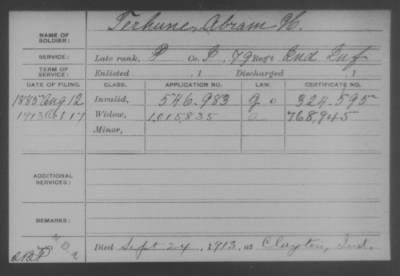 NAME OF SOLDIER: Terhune, Abram H.
SERVICE: Late rank, P Co. , 79 Reg't Ind Inf
TERM OF SERVICE: Enlisted , 1 Discharged , 1
DATE OF FILING. CLASS. APPLICATION NO. LAW. CERTIFICATE NO.
1885 Aug 12 Invalid, 546.983 324.595
1913 Oct 17 Widow, 1015835 768,945
Minor,
ADDITIONAL SERVICES:
REMARKS:
Died Sept 24, 1913, at Clayton, Ind.